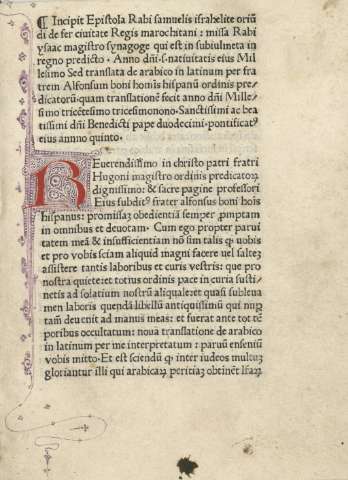 ¶ Incipit Epistola Rabi samuelis israhelite oriũ
di de fer ciuitate Regis marochitani: missa Rabi
ysaac magistro synagoge qui est in subiulmeta in
regno predicto. Anno dñi.s. natiuitatis eius Mil
lesimo Sed translata de arabico in latinum per fra
trem Alfonsum boni hoĩs hispanũ ordinis pre
dicatorũ. quam translationẽ fecit anno dñi Mille
simo tricẽtesimo tricesimonono. Sanctissimi ac bea
tissimi dñi Benedicti pape duodecimi. pontificatꝰ
eius anno quinto.
REuerendissimo in christo patri fratri
Hugoni magistro ordinis predicatoꝝ
dignissimo: & sacre pagine professori
Eius subditꝰ frater alfonsus boni hoĩs
hispanus: promissaȝ obedientiã semper ꝓmptam
in omnibus et deuotam. Cum ego propter parui
tatem meã & insufficientiam nõ sim talis ꝙ uobis
et pro vobis sciam aliquid magni facere uel saltez
assistere tantis laboribus et curis vestris: que pro
nostra quiete: et totius ordinis pace in curia susti
netis ad solatium nostrũ aliquale: et quasi subleua
men laboris quendã libellũ antiquissimũ qui nuꝑ
tam deuenit ad manus meas: et fuerat ante tot tẽ
poribus occultatum: noua translatione de arabico
in latinum per me interpretatum: paruũ enseniũ
vobis mitto. Et est sciendũ ꝙ inter iudeos multuȝ
gloriantur illi qui arabicaȝ peritiaȝ obtinẽt